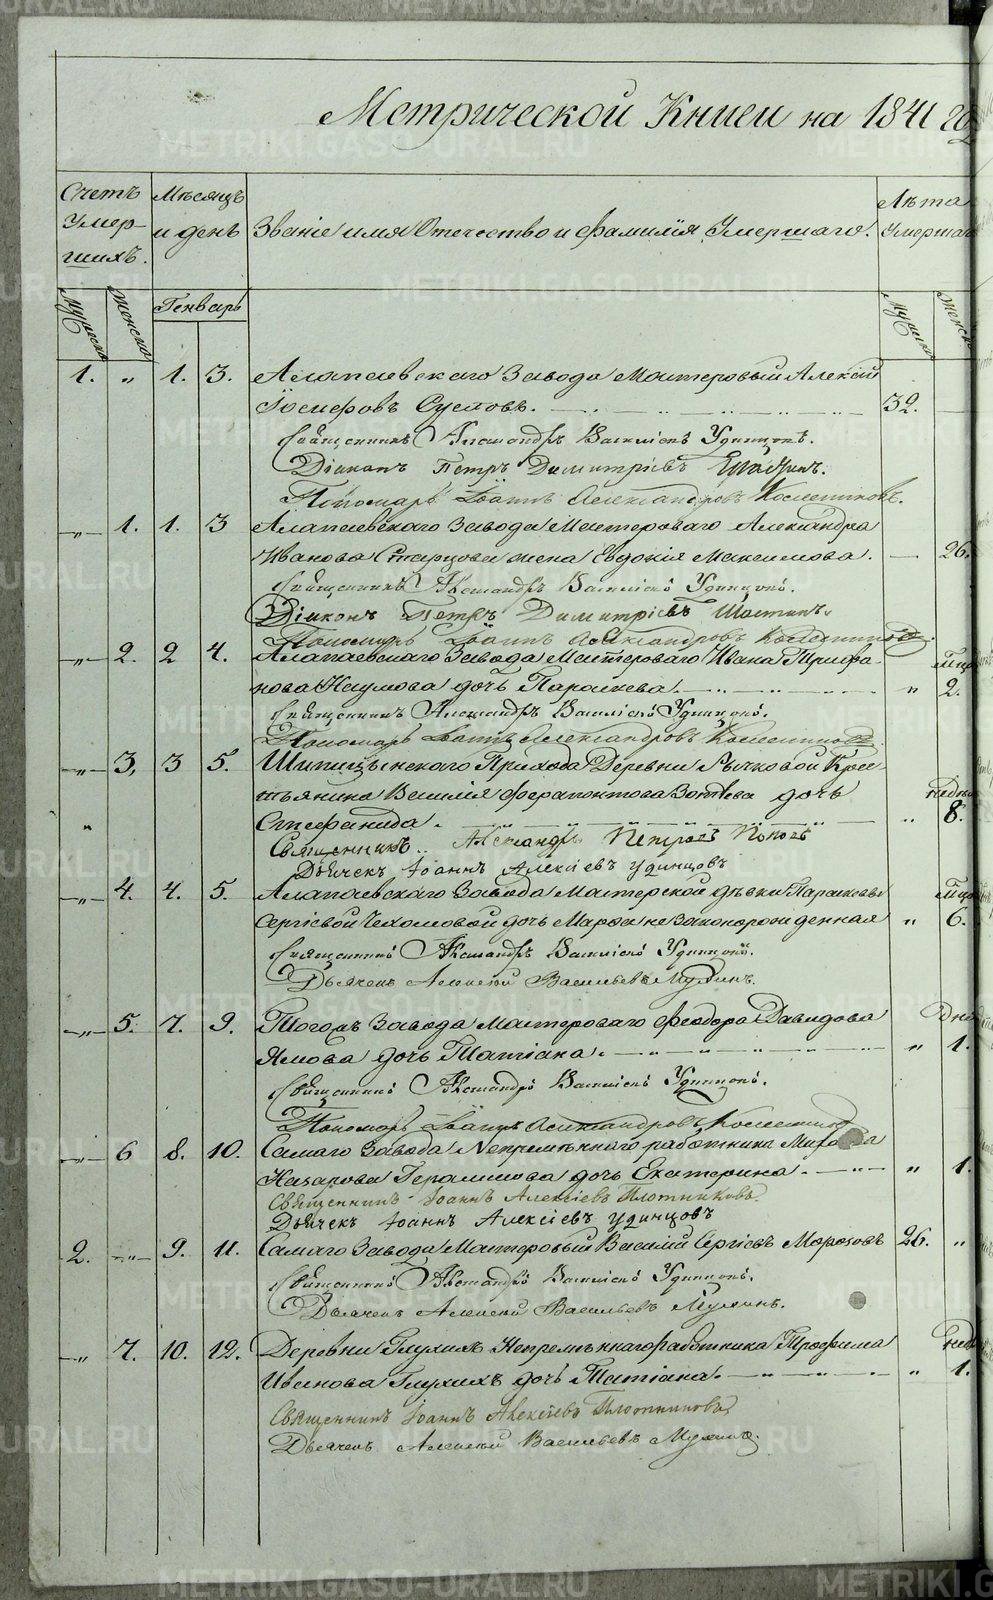 Метрической Книги на 1841 го
Счетъ
Умер-
шихъ.
Мѣсяцъ
и день
Званіе имя Отечество и фамилія Умершаго.
Лѣта
Умершаго
Мужеска
Женска
Генварь
Мужеска
Женска
1. „ 1. 3. Алапаевскаго Завода Мастеровый Алексѣй
Іосифовъ Сусловъ. 32.
Священникъ Александръ Василіевъ Удинцовъ.
Діаконъ Петръ Димитріевъ
Пономарь Іоаннъ Александровъ
„ 1. 1. 3 Алапаевскаго Завода Мастероваго Александра
Иванова Старцова жена Евдокія Максимова. 26.
Священникъ Александръ Василіевъ Удинцовъ.
Діаконъ Петръ Димитріевъ
Пономарь Іоаннъ Александровъ
„ 2. 2 4. Алапаевскаго Завода Мастероваго Ивана Трифа-
нова Наумова дочь Параскева. „ 2.
Священникъ Александръ Василіевъ Удинцовъ.
Пономарь Іоаннъ Александровъ
„ 3, 3 5. Шипицынскаго Прихода Деревни Рычковой Крес-
тьянина Василія Ферапонтова Зотѣева дочь
Стефанида. „ 8.
Священникъ Александръ Петровъ Поповъ
Дьячекъ Іоаннъ Алексіевъ Удинцовъ
„ 4. 4. 5. Алапаевскаго Завода Мастерской дѣвки Параскевы
Сергіевой Чехомовой дочь Марфа незаконорожденная „ 6.
Священникъ Александръ Василіевъ Удинцовъ.
Дьячекъ Алексѣй Васильевъ Мухинъ.
„ 5. 7. 9. Тогожъ Завода Мастероваго Феодора Давидова
Ямова дочь Татіана. „ 1.
Священникъ Александръ Василіевъ Удинцовъ.
Пономарь Іоаннъ Александровъ
„ 6 8. 10. Самаго Завода Непремѣннаго работника
Назарова Герасимова дочь Екатерина. „ 1.
Священникъ Іоаннъ Алексіевъ Плотниковъ.
Дьячекъ Іоаннъ Алексіевъ Удинцовъ
2. „ 9. 11. Самаго Завода Мастеровый Василій Сергіевъ Морозовъ 26. „
Священникъ Александръ Василіевъ Удинцовъ.
Дьячекъ Алексѣй Васильевъ Мухинъ.
„ 7. 10. 12. Деревни Глухихъ Непремѣннаго работника Трофима
Иванова Глухихъ дочь Татіана. „ 1.
Священникъ Іоаннъ Алексіевъ Плотниковъ
Дьячекъ Алексѣй Васильевъ Мухинъ.
METRIKI.GASO-URAL.RU